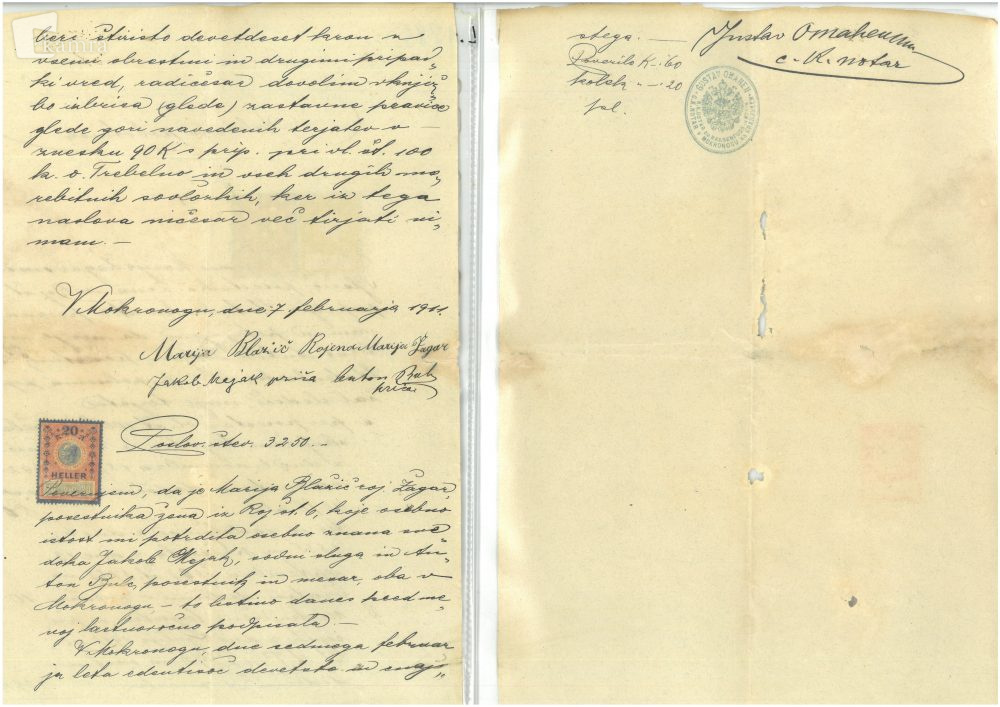 kamra
beri štiristo devetdeset kron z
vsemi obrestmi in drugimi pripad„
ki vred, radičesar dovolim vknjiž„
bo izbrisa (glede) zastavne pravice
glede gori navedenih terjatev v
znesku 90 K s prip. pri vl. št. 100
k. o. Trebelno in vseh drugih mo„
rebitnih sovložkih, ker iz tega
naslova ničesar več tirjati ni„
mam. —
V Mokronogu, dne 7. februarja 1911.
Marija Blažič Rojena Marija Žagar
Jakob Mejak priša Anton Bulc
priča
20
HELLER
Poslov. štev. 3250. —
Poverujem, da je Marija Blažič roj. Žagar,
posestnika žena iz Roj št. 6, koje osebno
istost mi potrdita osebno znana sve„
doka Jakob Mejak, sodni sluga in An„
ton Bulc, posestnik in mesar, oba v
Mokronogu — to listino danes pred me„
noj lastnoročno podpisala. —
V Mokronogu, dne sedmega februar„
ja leta edentisoč devetsto in enaj„
stega. —
Gustav Omahen
c. k. notar
Poverilo K -.60
kolek " -.20
GUSTAV OMAHEN
MOKRONOGU